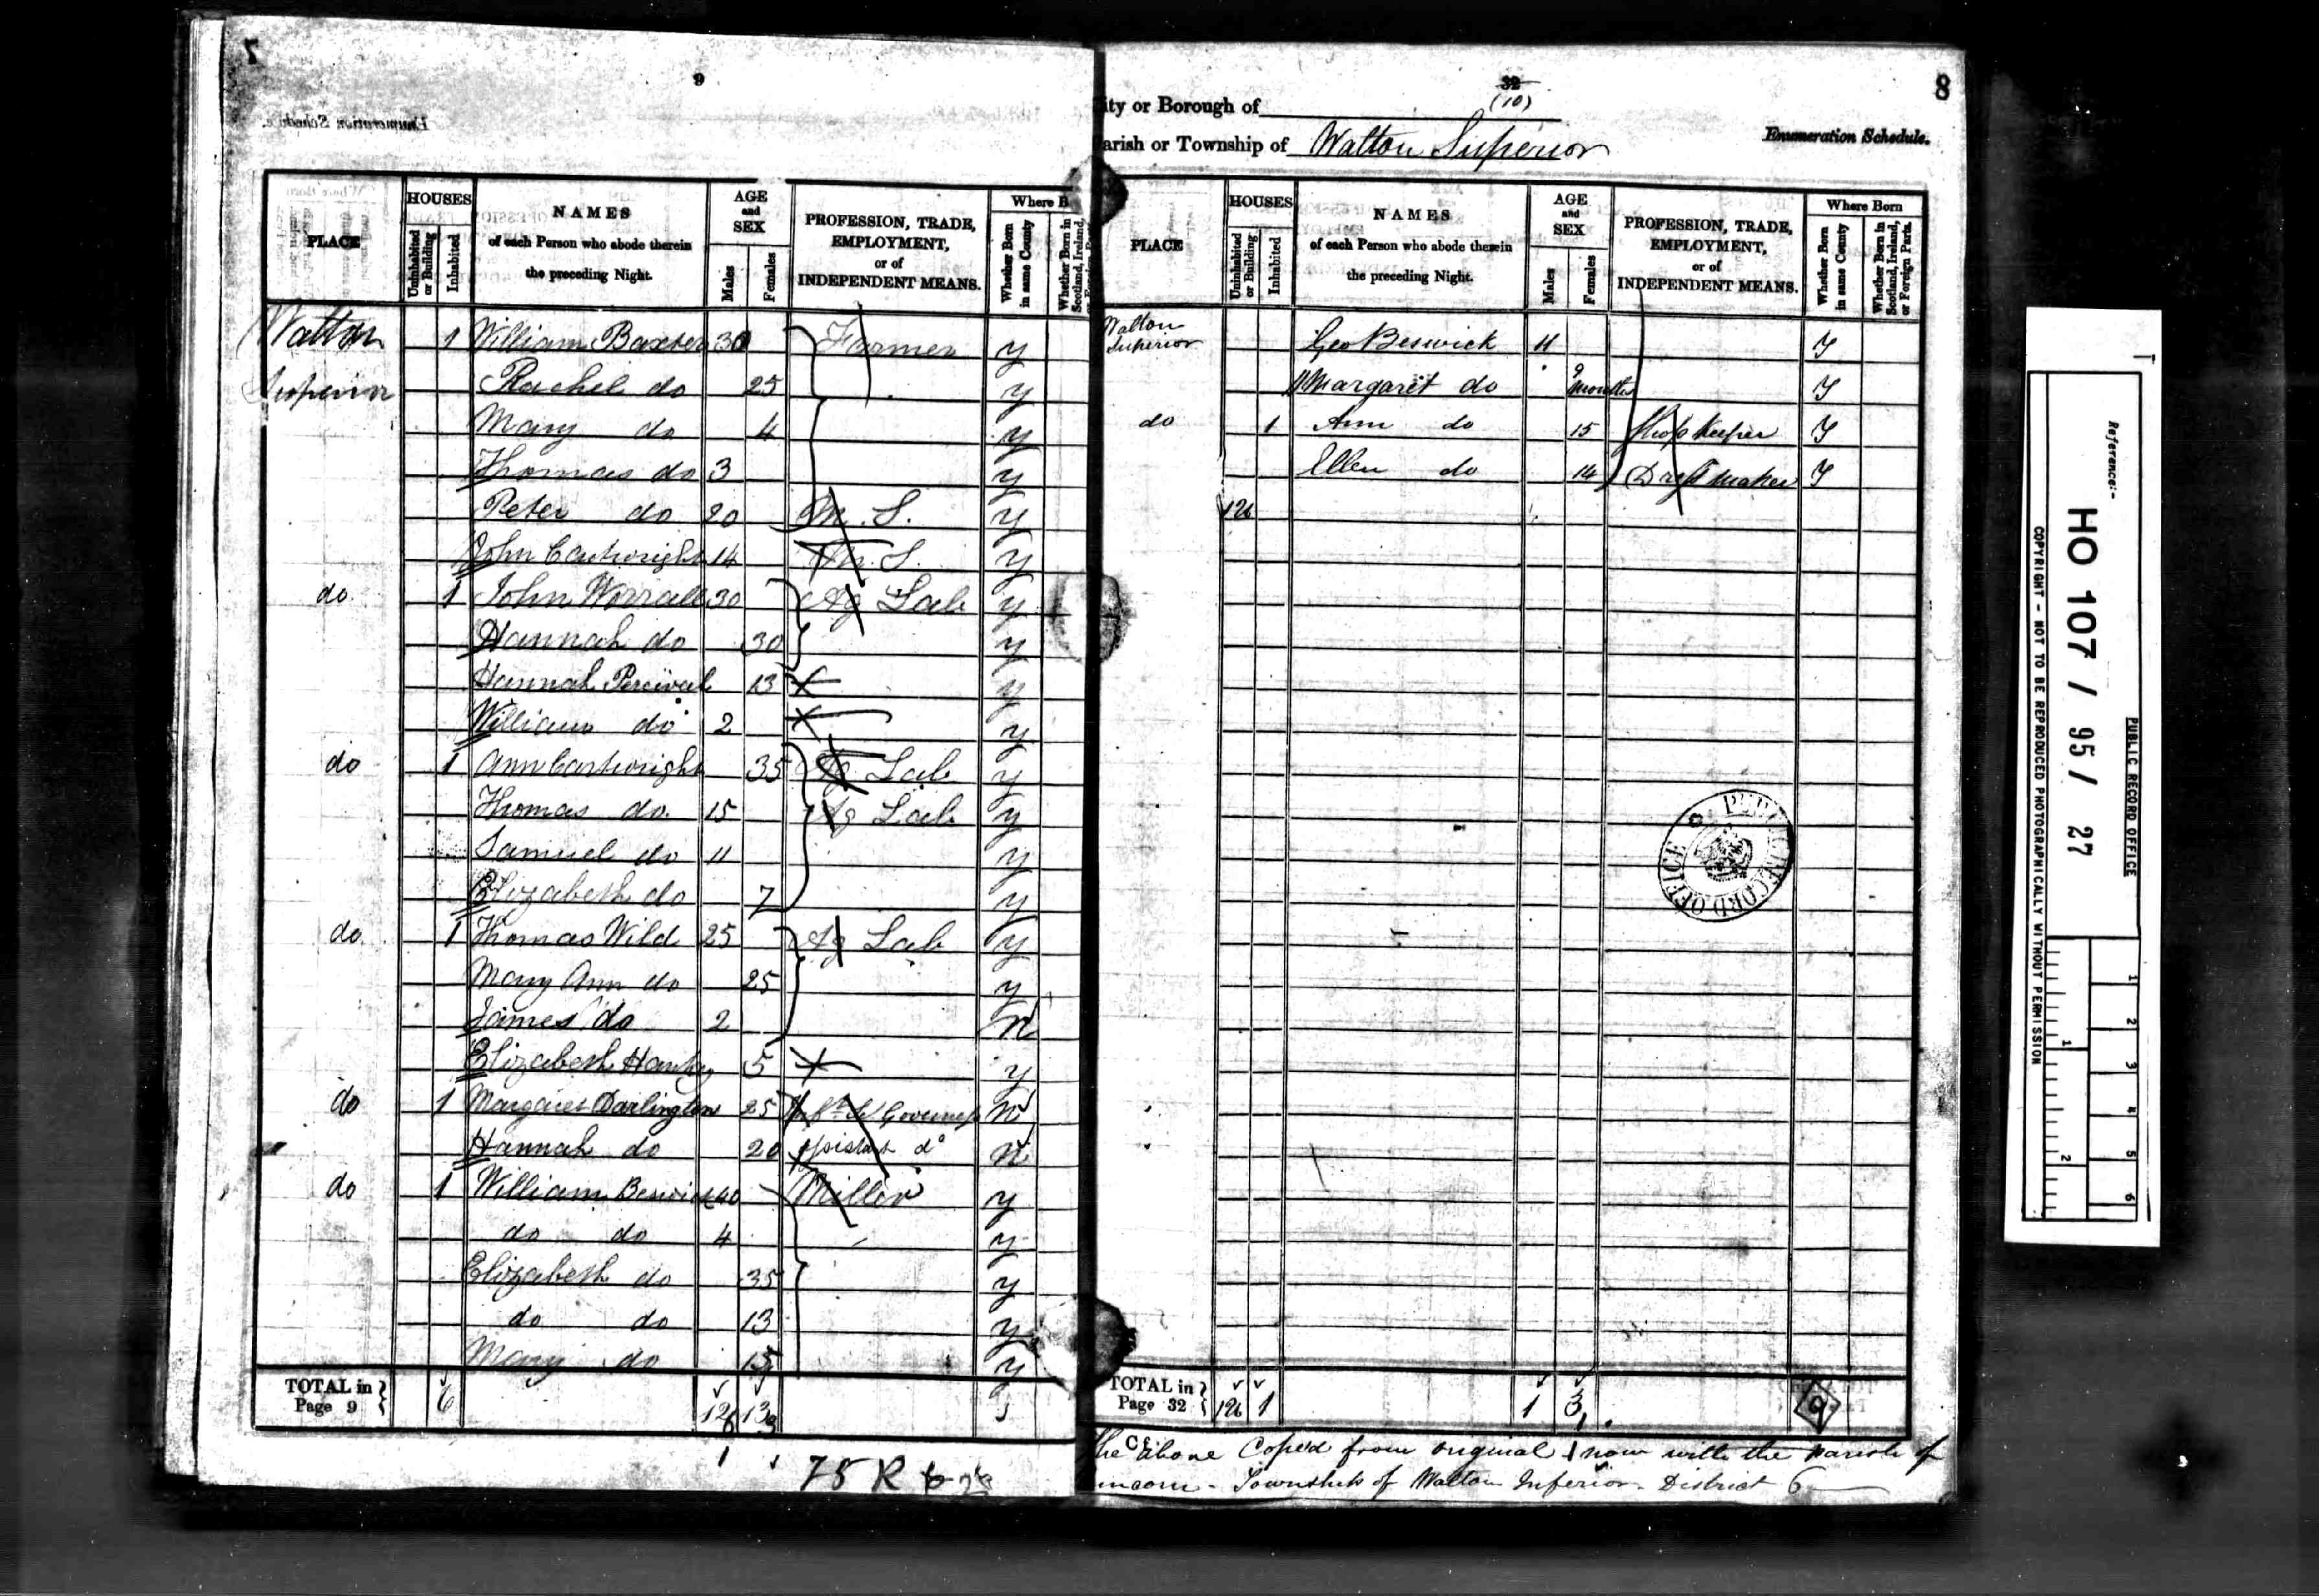 7
9
Enumeration Schedule.
PLACE
HOUSES
Uninhabited or Building
Inhabited
NAMES
of each Person who abode therein
the preceding Night.
AGE
and
SEX
Males
Females
PROFESSION, TRADE,
EMPLOYMENT,
or of
INDEPENDENT MEANS.
Where B
Whether Born in same County
Whether Born in Scotland, Ireland,
Walton 1 William Baxter 30 Farmer y
Superior Rachel do 25 y
Mary do 4 y
Thomas do 3 y
Peter do 20 M. S. y
John Cartwright 14 M. S. y
do 1 John Worrall 30 Ag Lab y
Hannah do 30 y
Hannah Percival 13 y
William do 2 y
do 1 Ann Cartwright 35 Ag Lab y
Thomas do 15 Ag Lab y
Samuel do 11 y
Elizabeth do 7 y
do 1 Thomas Wild 25 Ag Lab y
Mary Ann do 25 y
James do 2 N
Elizabeth 5 y
do 1 Margaret Darlington 25 Governess N
Hannah do 20 Assistant do N
do 1 William Beswick 40 Miller y
do do 4 y
Elizabeth do 35 y
do do 13 y
Mary do 15 y
TOTAL in
Page 9
6 12 13
75 R
8
32
(10)
ity or Borough of
arish or Township of Walton Superior
Enumeration Schedule.
PLACE
HOUSES
Uninhabited or Building
Inhabited
NAMES
of each Person who abode therein
the preceding Night.
AGE
and
SEX
Males
Females
PROFESSION, TRADE,
EMPLOYMENT,
or of
INDEPENDENT MEANS.
Where Born
Whether Born in same County
Whether Born in Scotland, Ireland, or Foreign Parts.
Walton
Superior Geo Beswick 11 Y
Margaret do 9 months Y
do 1 Ann do 15 Shop Keeper Y
Ellen do 14 Dress maker Y
126
PUBLIC RECORD OFFICE
TOTAL in
Page 32
126 1 1 3
9
The above Copied from original now with the parish of
uncorn - Township of Walton Inferior District 6
Reference:-
HO 107 / 95 / 27
PUBLIC RECORD OFFICE
COPYRIGHT - NOT TO BE REPRODUCED PHOTOGRAPHICALLY WITHOUT PERMISSION
1
2
1 2 3 4 5 6